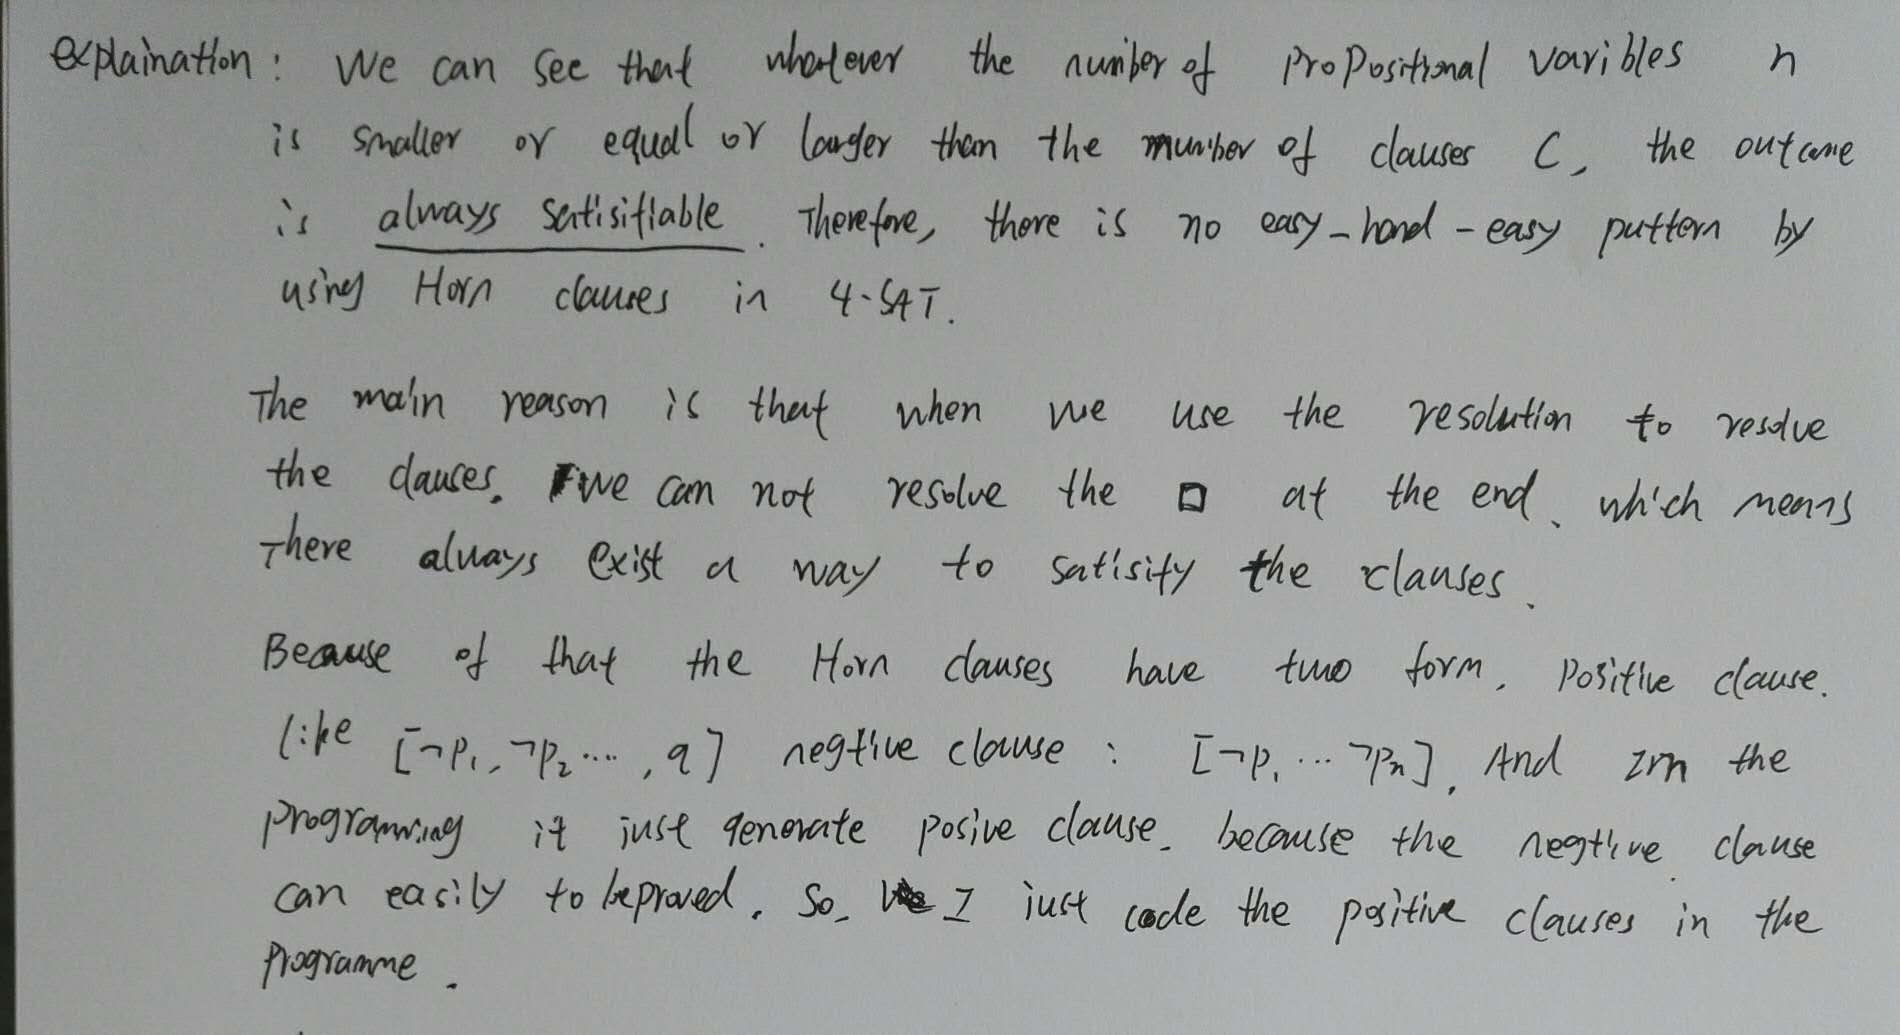 explaination: We can see that whatever the number of propositional varibles n
is smaller or equal or larger than the number of clauses C, the outcome
is always satisifiable. Therefore, there is no easy-hard-easy pattern by
using Horn clauses in 4-SAT.
The main reason is that when we use the resolution to resolve
the clauses, we can not resolve the □ at the end, which means
There always exist a way to satisity the clauses.
Because of that the Horn clauses have two form, positive clause.
like [¬P₁, ¬P₂ ... , q] negtive clause : [¬P₁ ... ¬Pₙ], And in the
programming it just generate posive clause, because the negtive clause
can easily to be proved. So, I just code the positive clauses in the
programme.